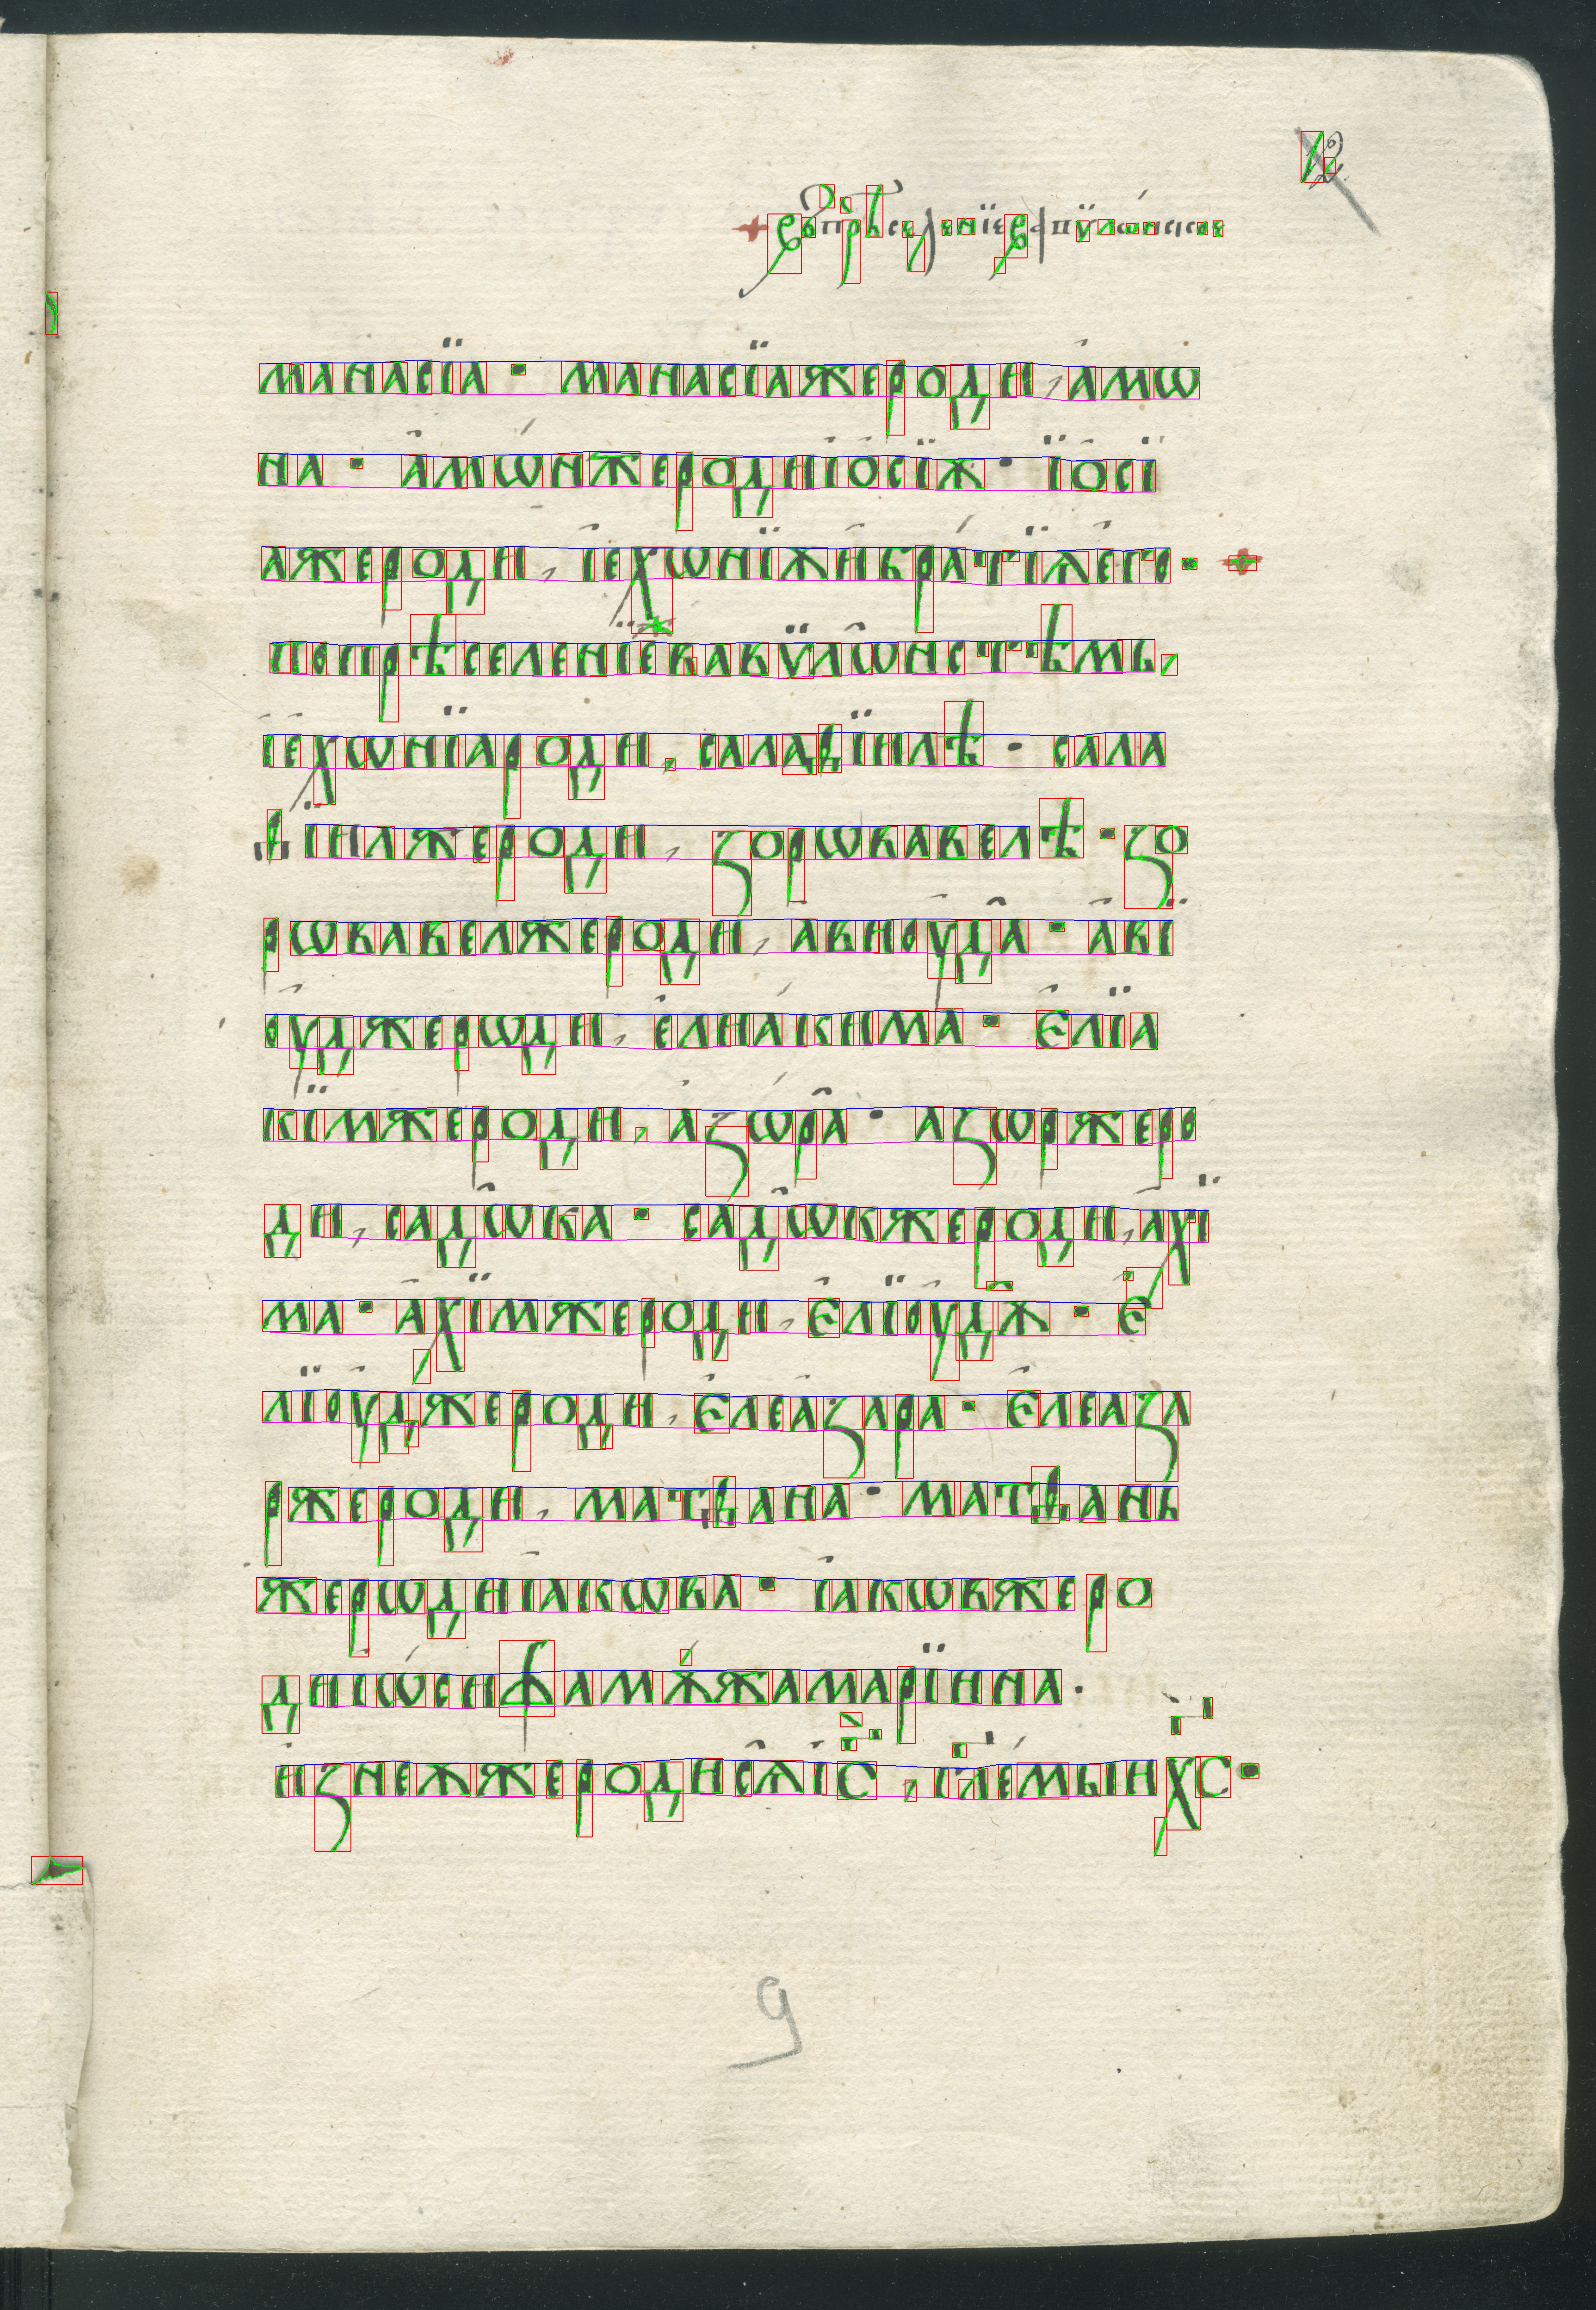 въ прѣселенїе вавѵлѡнское
манасїа · манасїа же роди, амѡ
на · амѡн же роди їосїѫ · їосї
а же роди, їехѡнїѫ и братїѧ его ·
по прѣселенїе вавѵлѡнстѣмь,
їехѡнїа роди, салаѳїилѣ · сала
ѳїил же роди, зорѡвавелѣ · зо
рѡвавел же роди, авиоуда · аві
оуд же рѡди, елиакима · Еліа
кїм же роди, азѡра · азѡр же ро
ди, садѡка · садѡк же роди, ахї
ма · ахїм же роди, Елїоудѫ · Е
лїоуд же роди, Елеазара · Елеаза
р же роди, матѳана · матѳань
же рѡди їакѡва · їакѡв же ро
ди їѡсифа мѫжа марїина ·
из неѫже родисѧ їс, глемыи хс ·
9